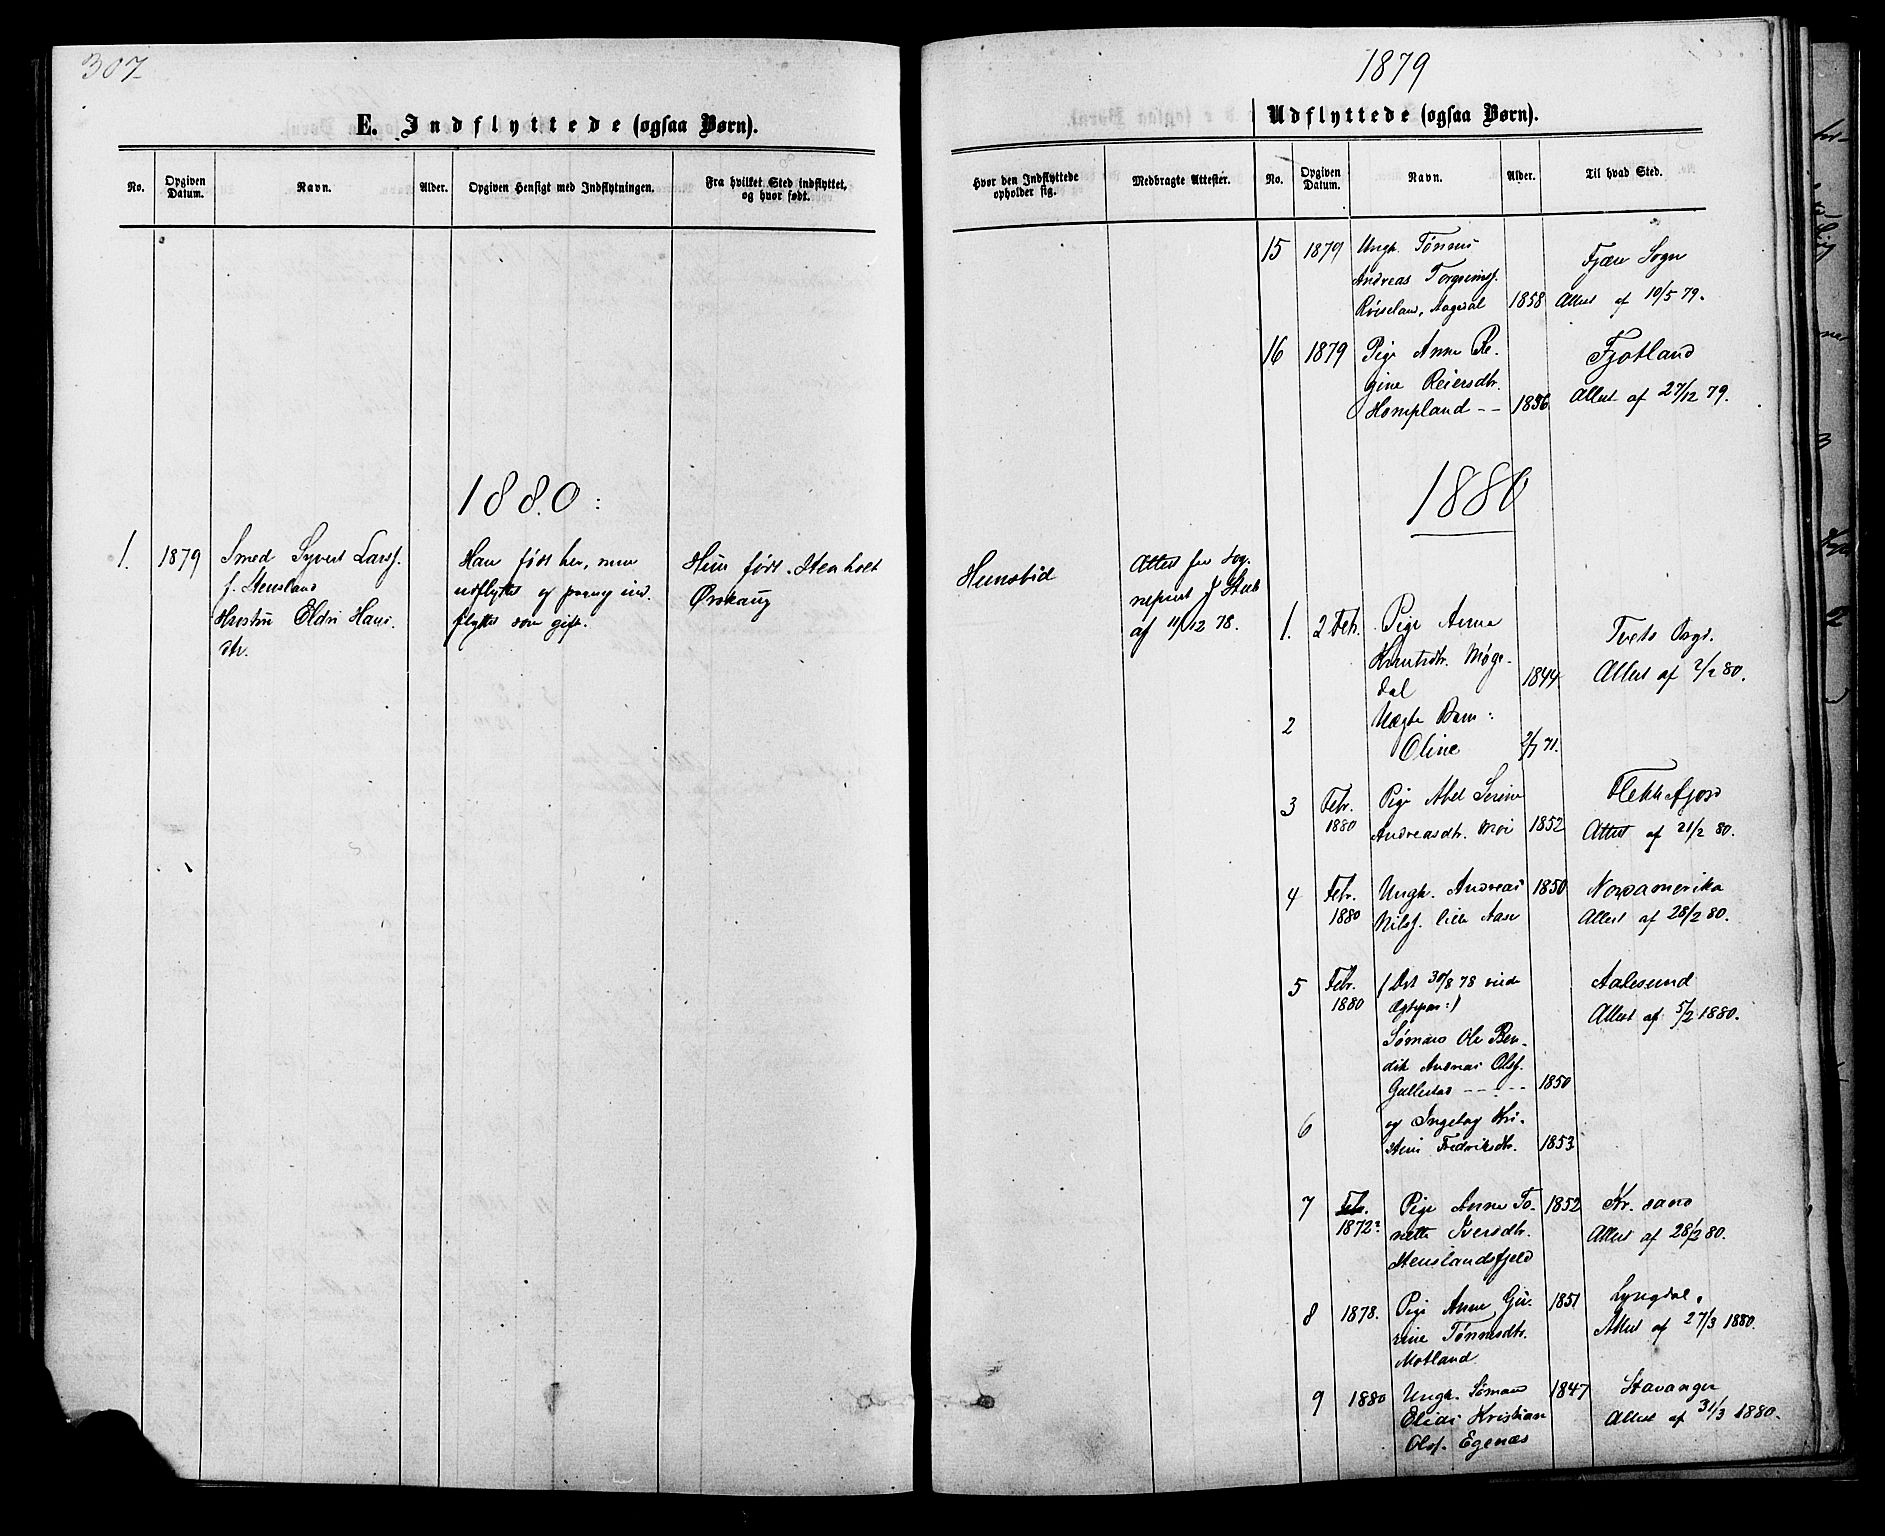 307
E. Indflyttede (ogsaa Børn).
No.
Opgiven Datum.
Navn.
Alder.
Opgiven Hensigt med Indflytningen.
Fra hvilket Sted indflyttet,
og hvor født.
1880:
1. 1879
Smed Syvert Larss.
f. Stensland
Hustru Eldri Hans-
dtr.
Han født her, men
udflyttet og paany ind-
flyttet som gift.
Hun født
Ørskaug
1879
Udflyttede (ogsaa Børn).
Hvor den Indflyttede
opholder sig.
Medbragte Attester.
No.
Opgiven
Datum.
Navn.
Alder.
Til hvad Sted.
Hunsbid
Attest fra Sog-
neprest J Stub
af 11/12 78.
15 1879 Ungk. Tønnes
Andreas Torgrimss.
Røiseland, Aagedal 1858
Fjære Sogn
Attest af 10/5 79.
16 1879 Pige Anne Re-
gine Reiersdtr.
Hompland -- 1856
Fjotland
Attest af 27/12 79.
1880
1. 2 Febr. Pige Anna
Knutsdtr. Møge-
dal 1844
Tveds Sogn.
Attest af 2/2 80.
2 Uægte Barn:
Oline 2/7 71.
3 Febr.
1880
Pige Abel Serine
Andreasdtr. Moi 1852
Flekkefjord
Attest af 21/2 80.
4 Febr.
1880
Ungk. Andreas 1850
Nilss. lille Aase
Nordamerika
Attest af 28/2 80.
5 Febr.
1880
(Det 30/8 78 viede
Ægtepar:)
Sømand Ole Ben-
dik Andreas Olss.
Gullestad ----- 1850
Aalesund
Attest af 5/2 1880.
6 og Ingeborg Kri-
stine Fredriksdtr. 1853
7 Febr.
1872?
Pige Anne To- 1852
nette Iversdtr.
Stenslandsfjeld
Kr.sand
Attest af 28/2 80.
8 1878. Pige Anne Gu- 1851
rine Tønnesdtr.
Motland
Lyngdal.
Attest af 27/3 1880.
9 1880 Ungk. Sømand 1847
Elias Kristian
Olss. Egenæs
Stavanger
Attest af 31/3 1880.